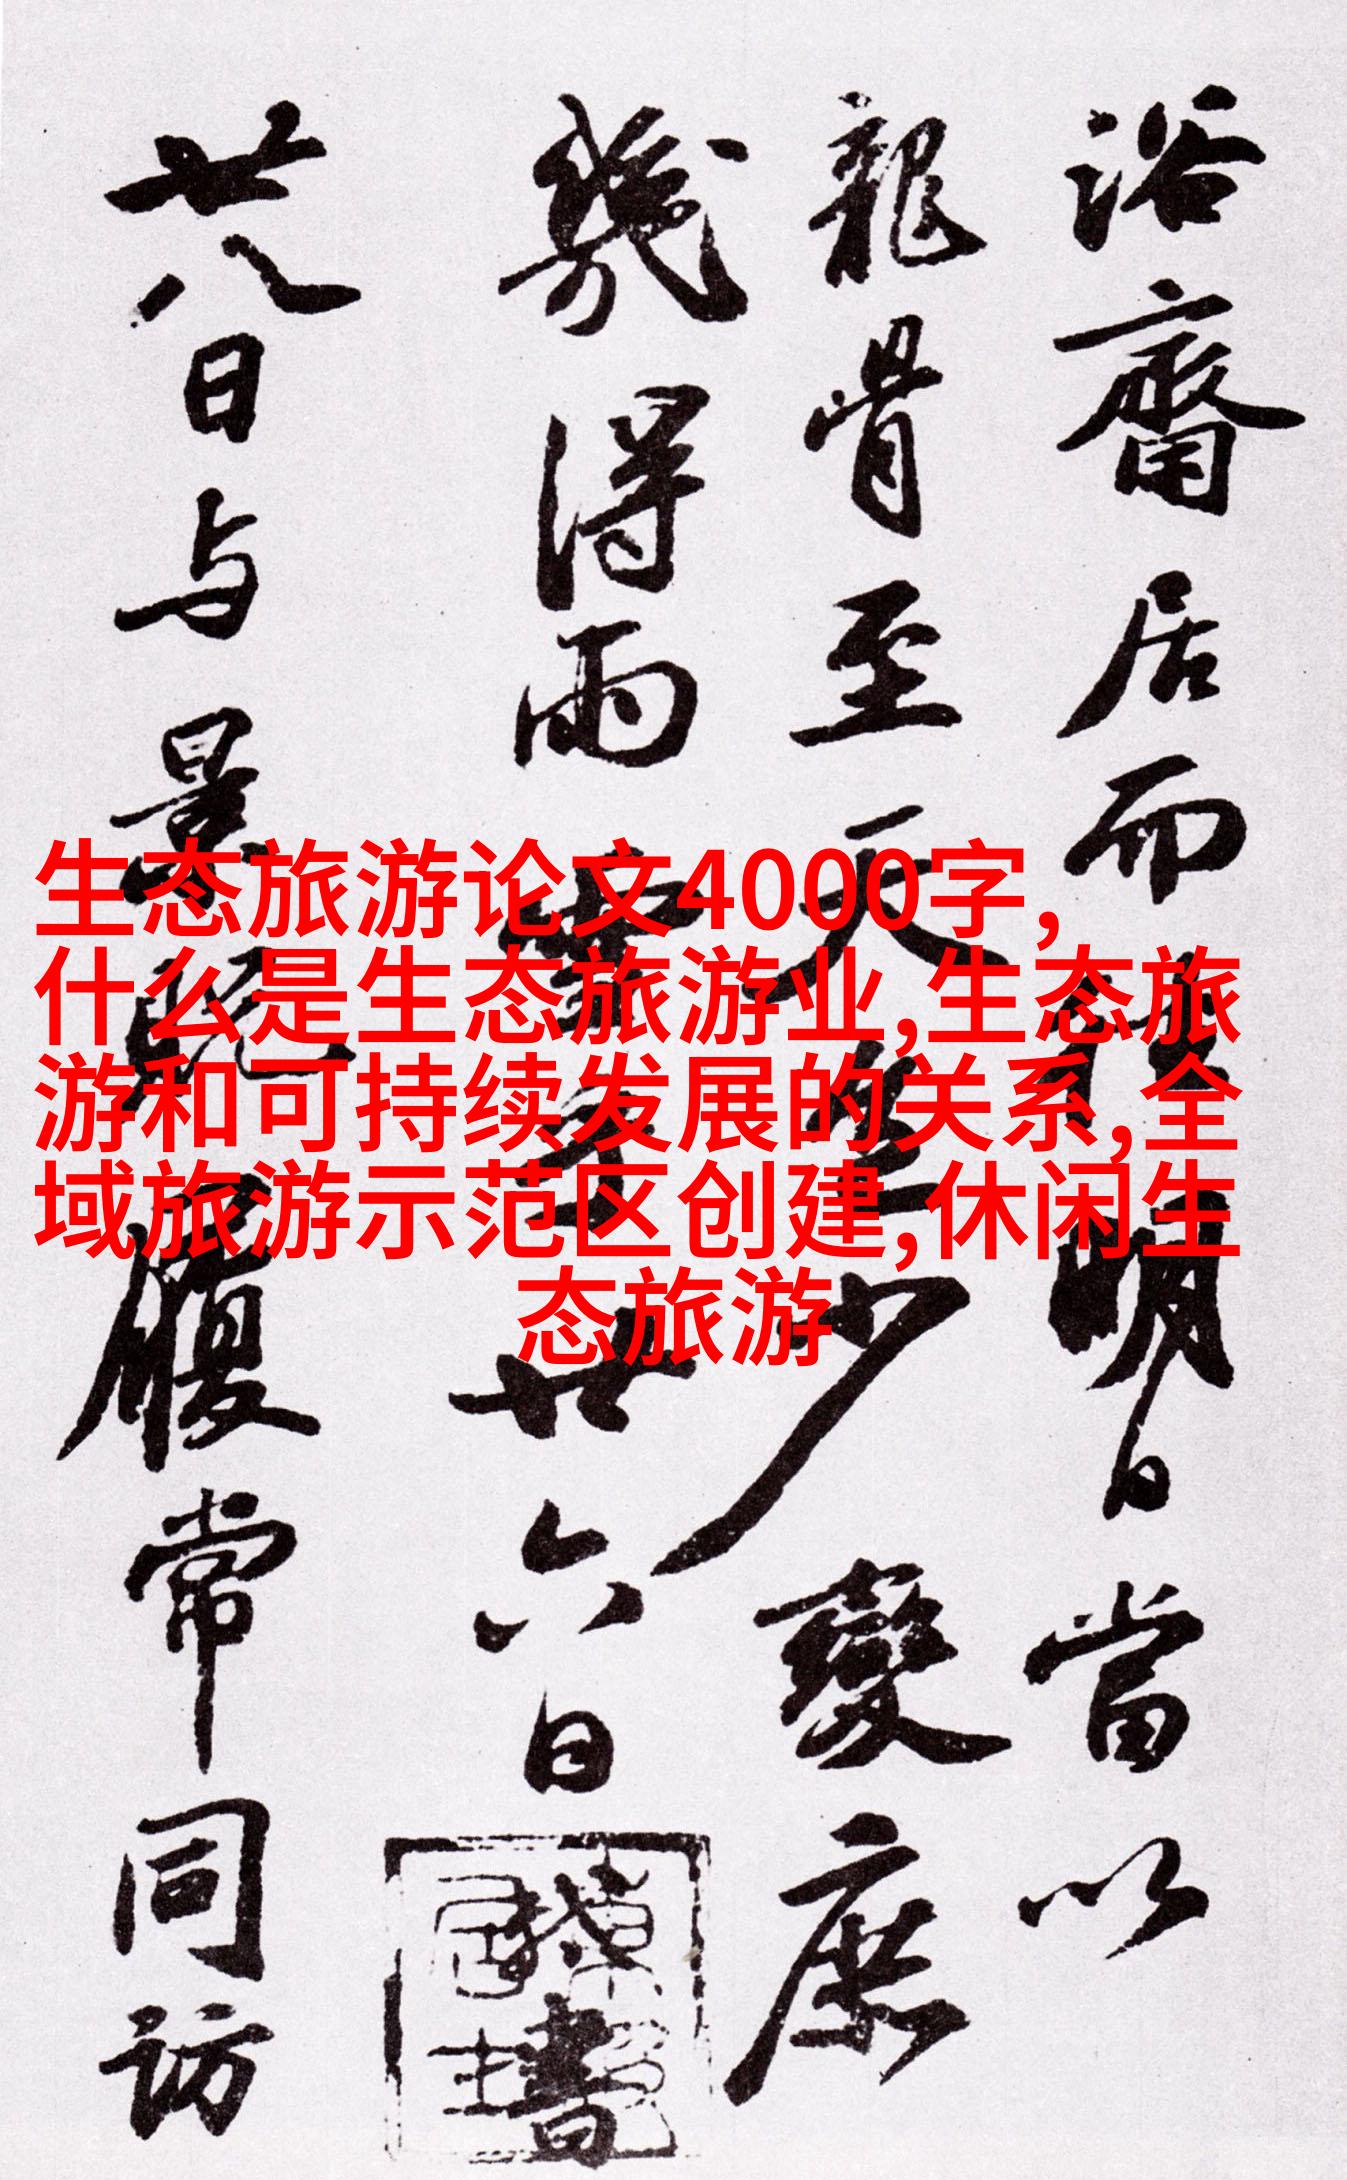 浴斋居而
明日當以
龍骨至天
少變庶
幾得雨
廿六日
書
廿八日与景
履常同訪
生态旅游论文4000字,
什么是生态旅游业,生态旅
游和可持续发展的关系,全
域旅游示范区创建,休闲生
态旅游